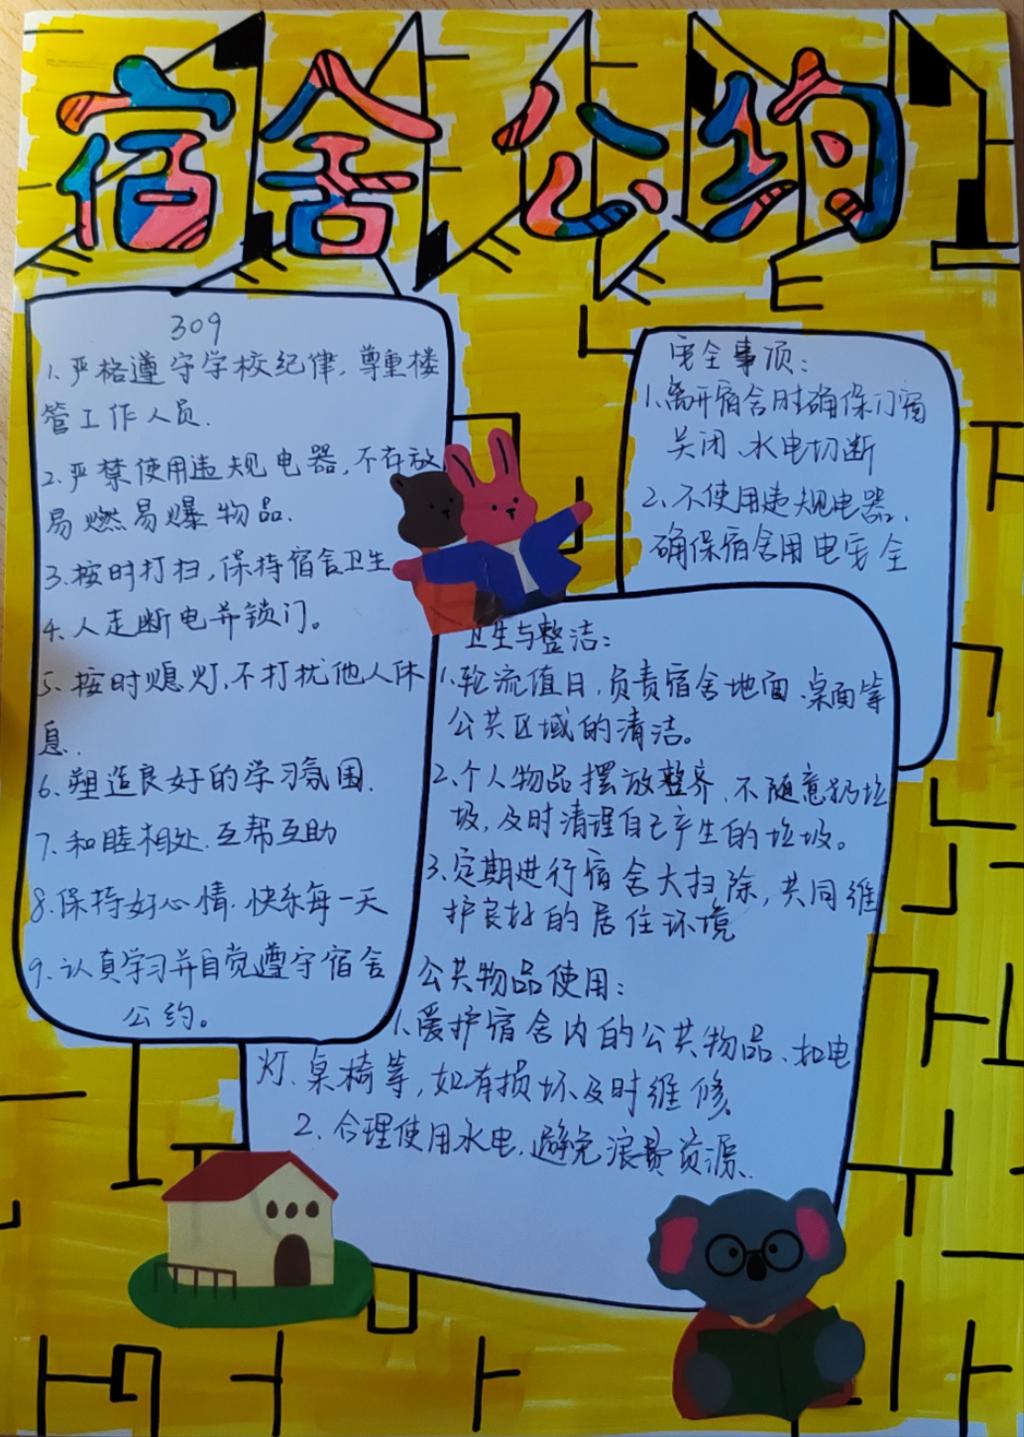 宿舍公约
309
1、严格遵守学校纪律，尊重楼
管工作人员.
2、严禁使用违规电器，不存放
易燃易爆物品.
3.按时打扫，保持宿舍卫生
4、人走断电并锁门。
5、按时熄灯，不打扰他人休
息.
6、塑造良好的学习氛围.
7、和睦相处.互帮互助
8、保持好心情.快乐每一天
9、认真学习并自觉遵守宿舍
公约。
安全事项：
1、离开宿舍时确保门窗
关闭、水电切断
2、不使用违规电器.
确保宿舍用电安全
卫生与整洁：
1、轮流值日，负责宿舍地面、桌面等
公共区域的清洁。
2、个人物品摆放整齐，不随意扔垃
圾，及时清理自己产生的垃圾。
3、定期进行宿舍大扫除，共同维
护良好的居住环境
公共物品使用：
1、爱护宿舍内的公共物品、如电
灯、桌椅等，如有损坏及时维修、
2、合理使用水电，避免浪费资源、